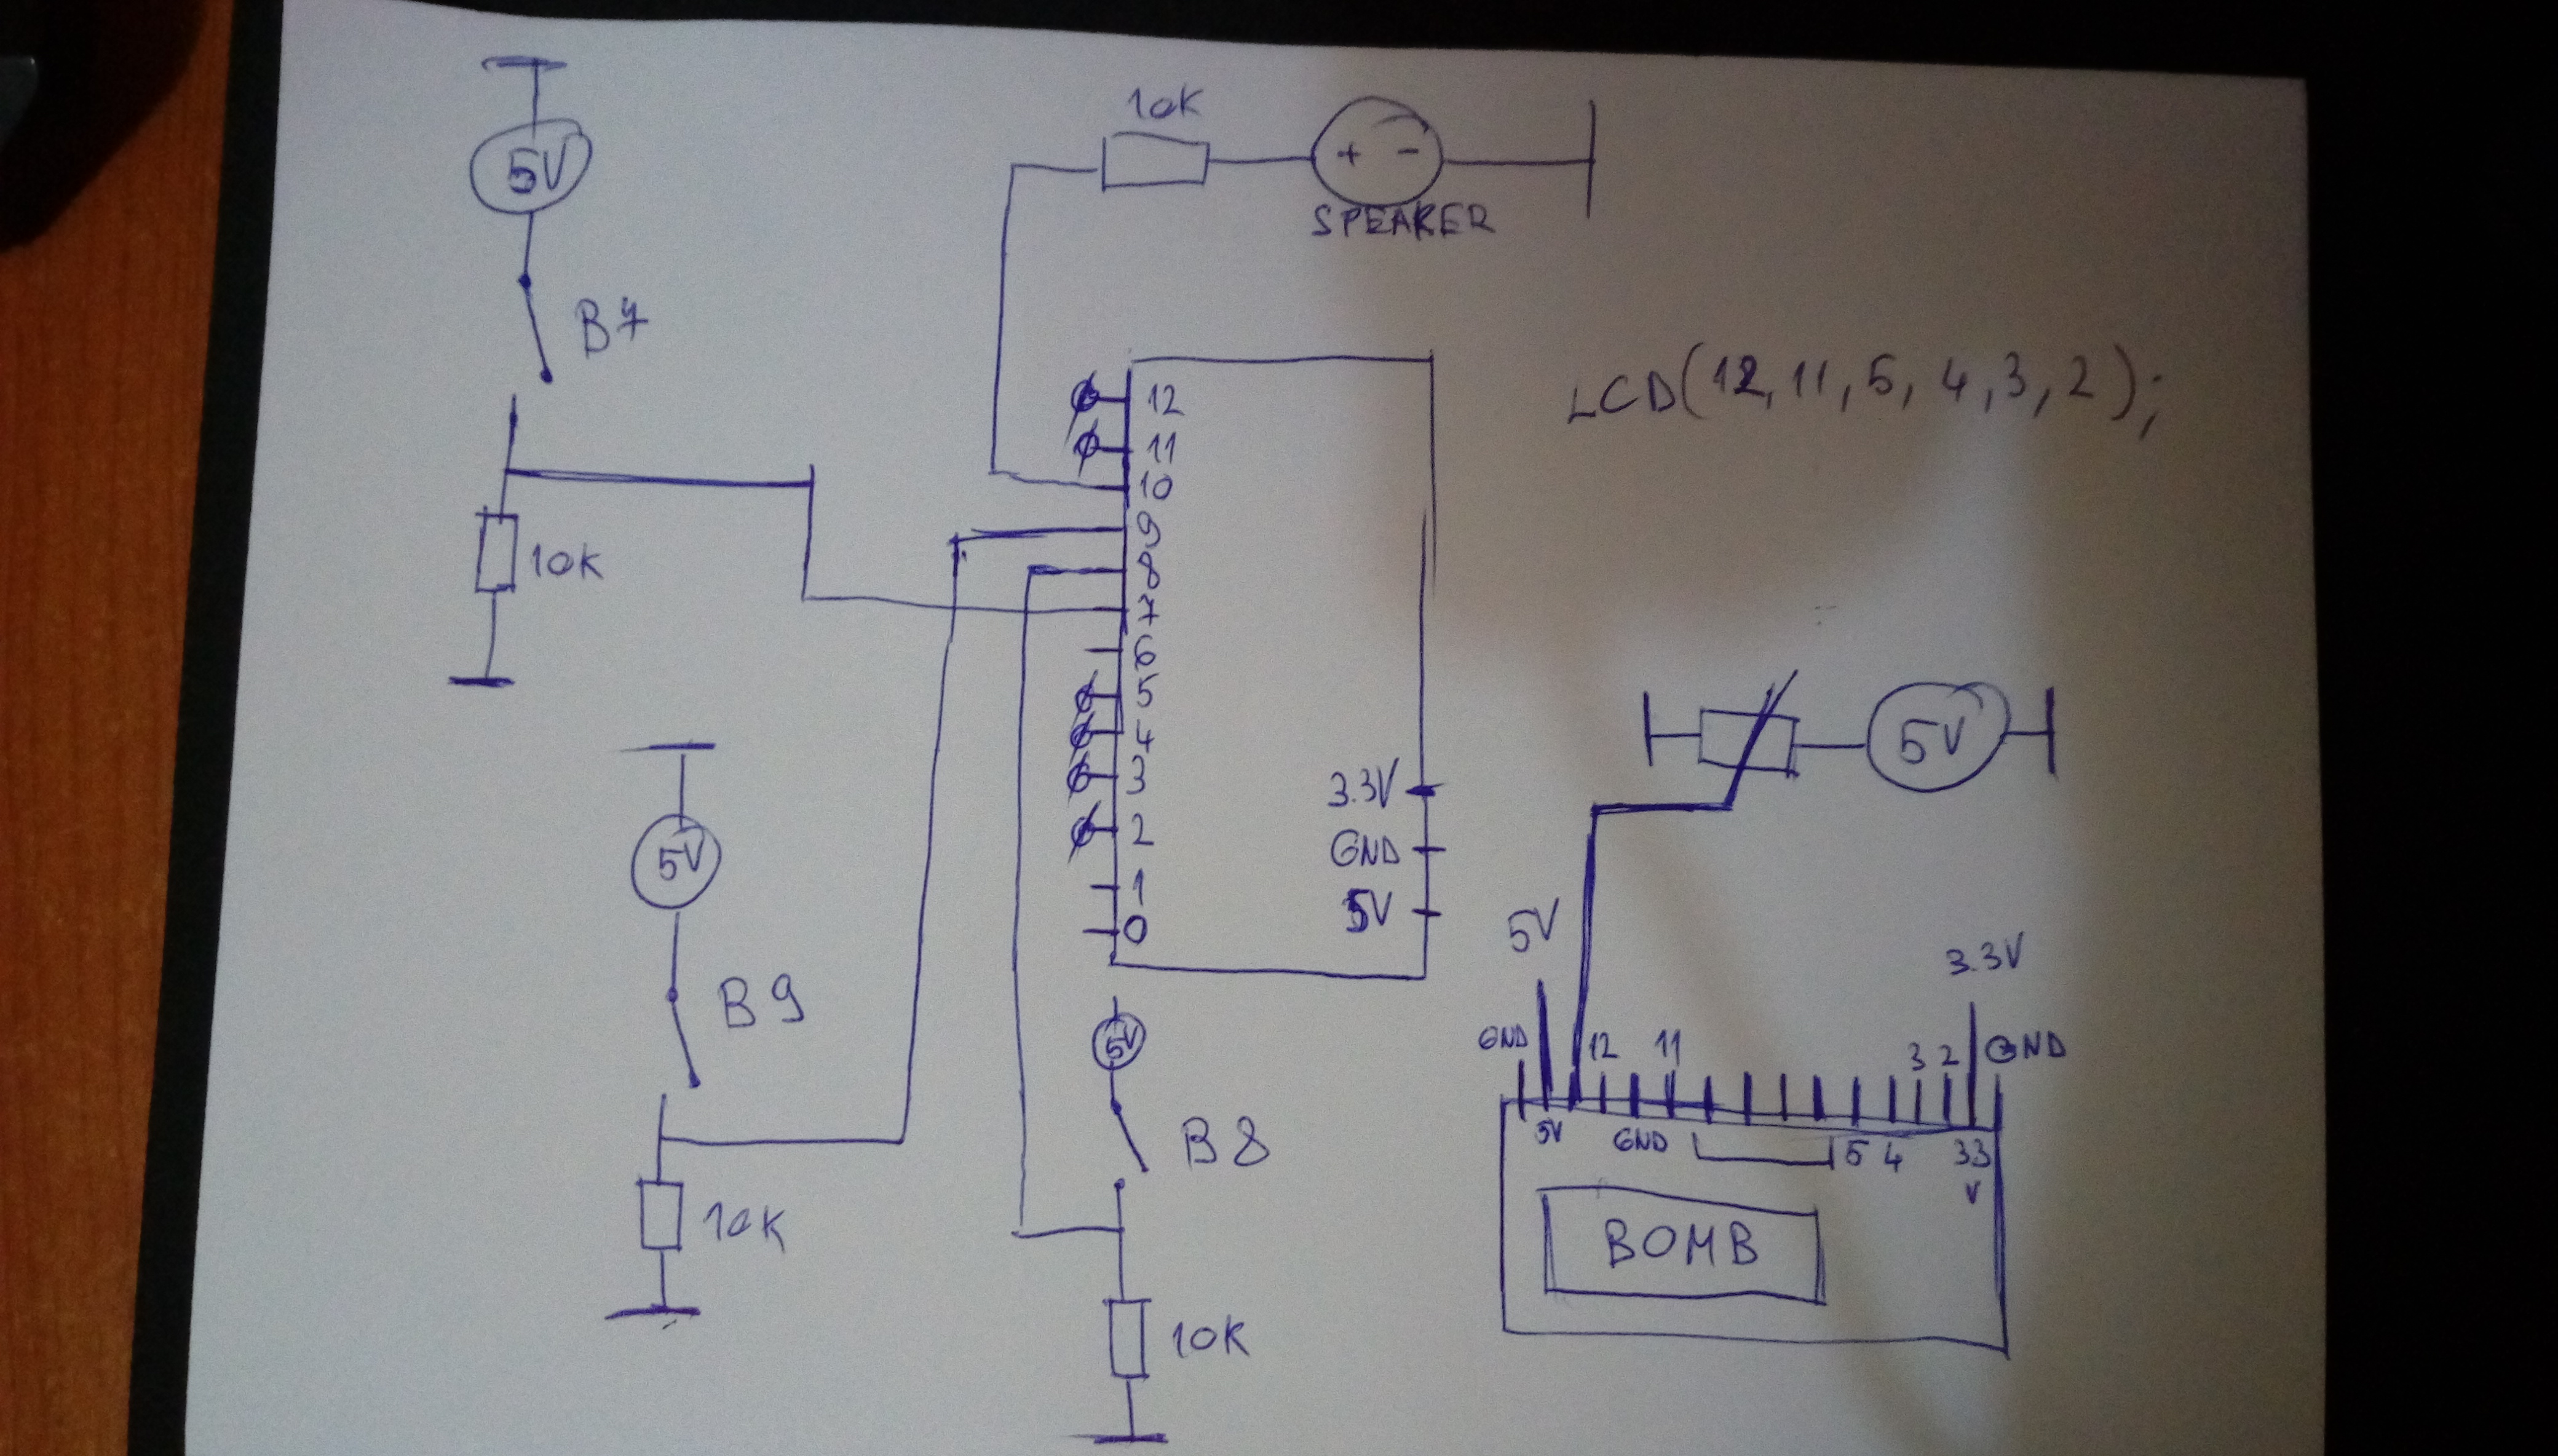 5V
B7
10K
10K
+ -
SPEAKER
12
11
10
9
8
7
6
5
4
3
2
1
0
3.3V
GND
5V
LCD(12,11,5,4,3,2);
5V
B9
10K
5V
B8
10K
5V
5V
3.3V
GND 12 11 3 2 GND
5V GND 5 4 33
V
BOMB